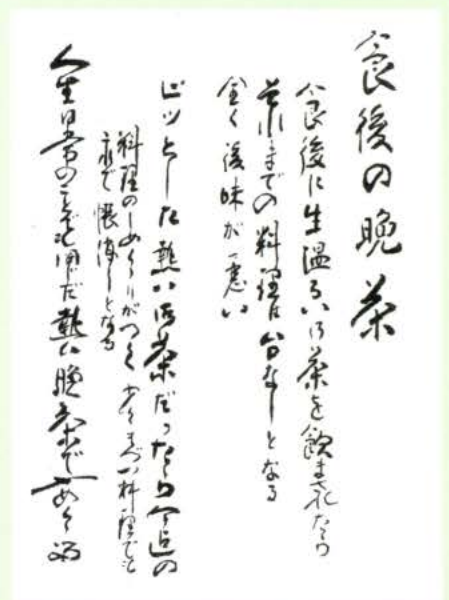 食後の晩茶
食後に生温るいお茶を飲まされたら
それまでの料理は台なしとなる
全く後味が悪い
ピリッとした熱いお茶だったら今迄の
料理のしめくくりがつく 少々まづい料理でも
之で帳消しとなる
人生日常のことでも同じだ熱い晩茶で